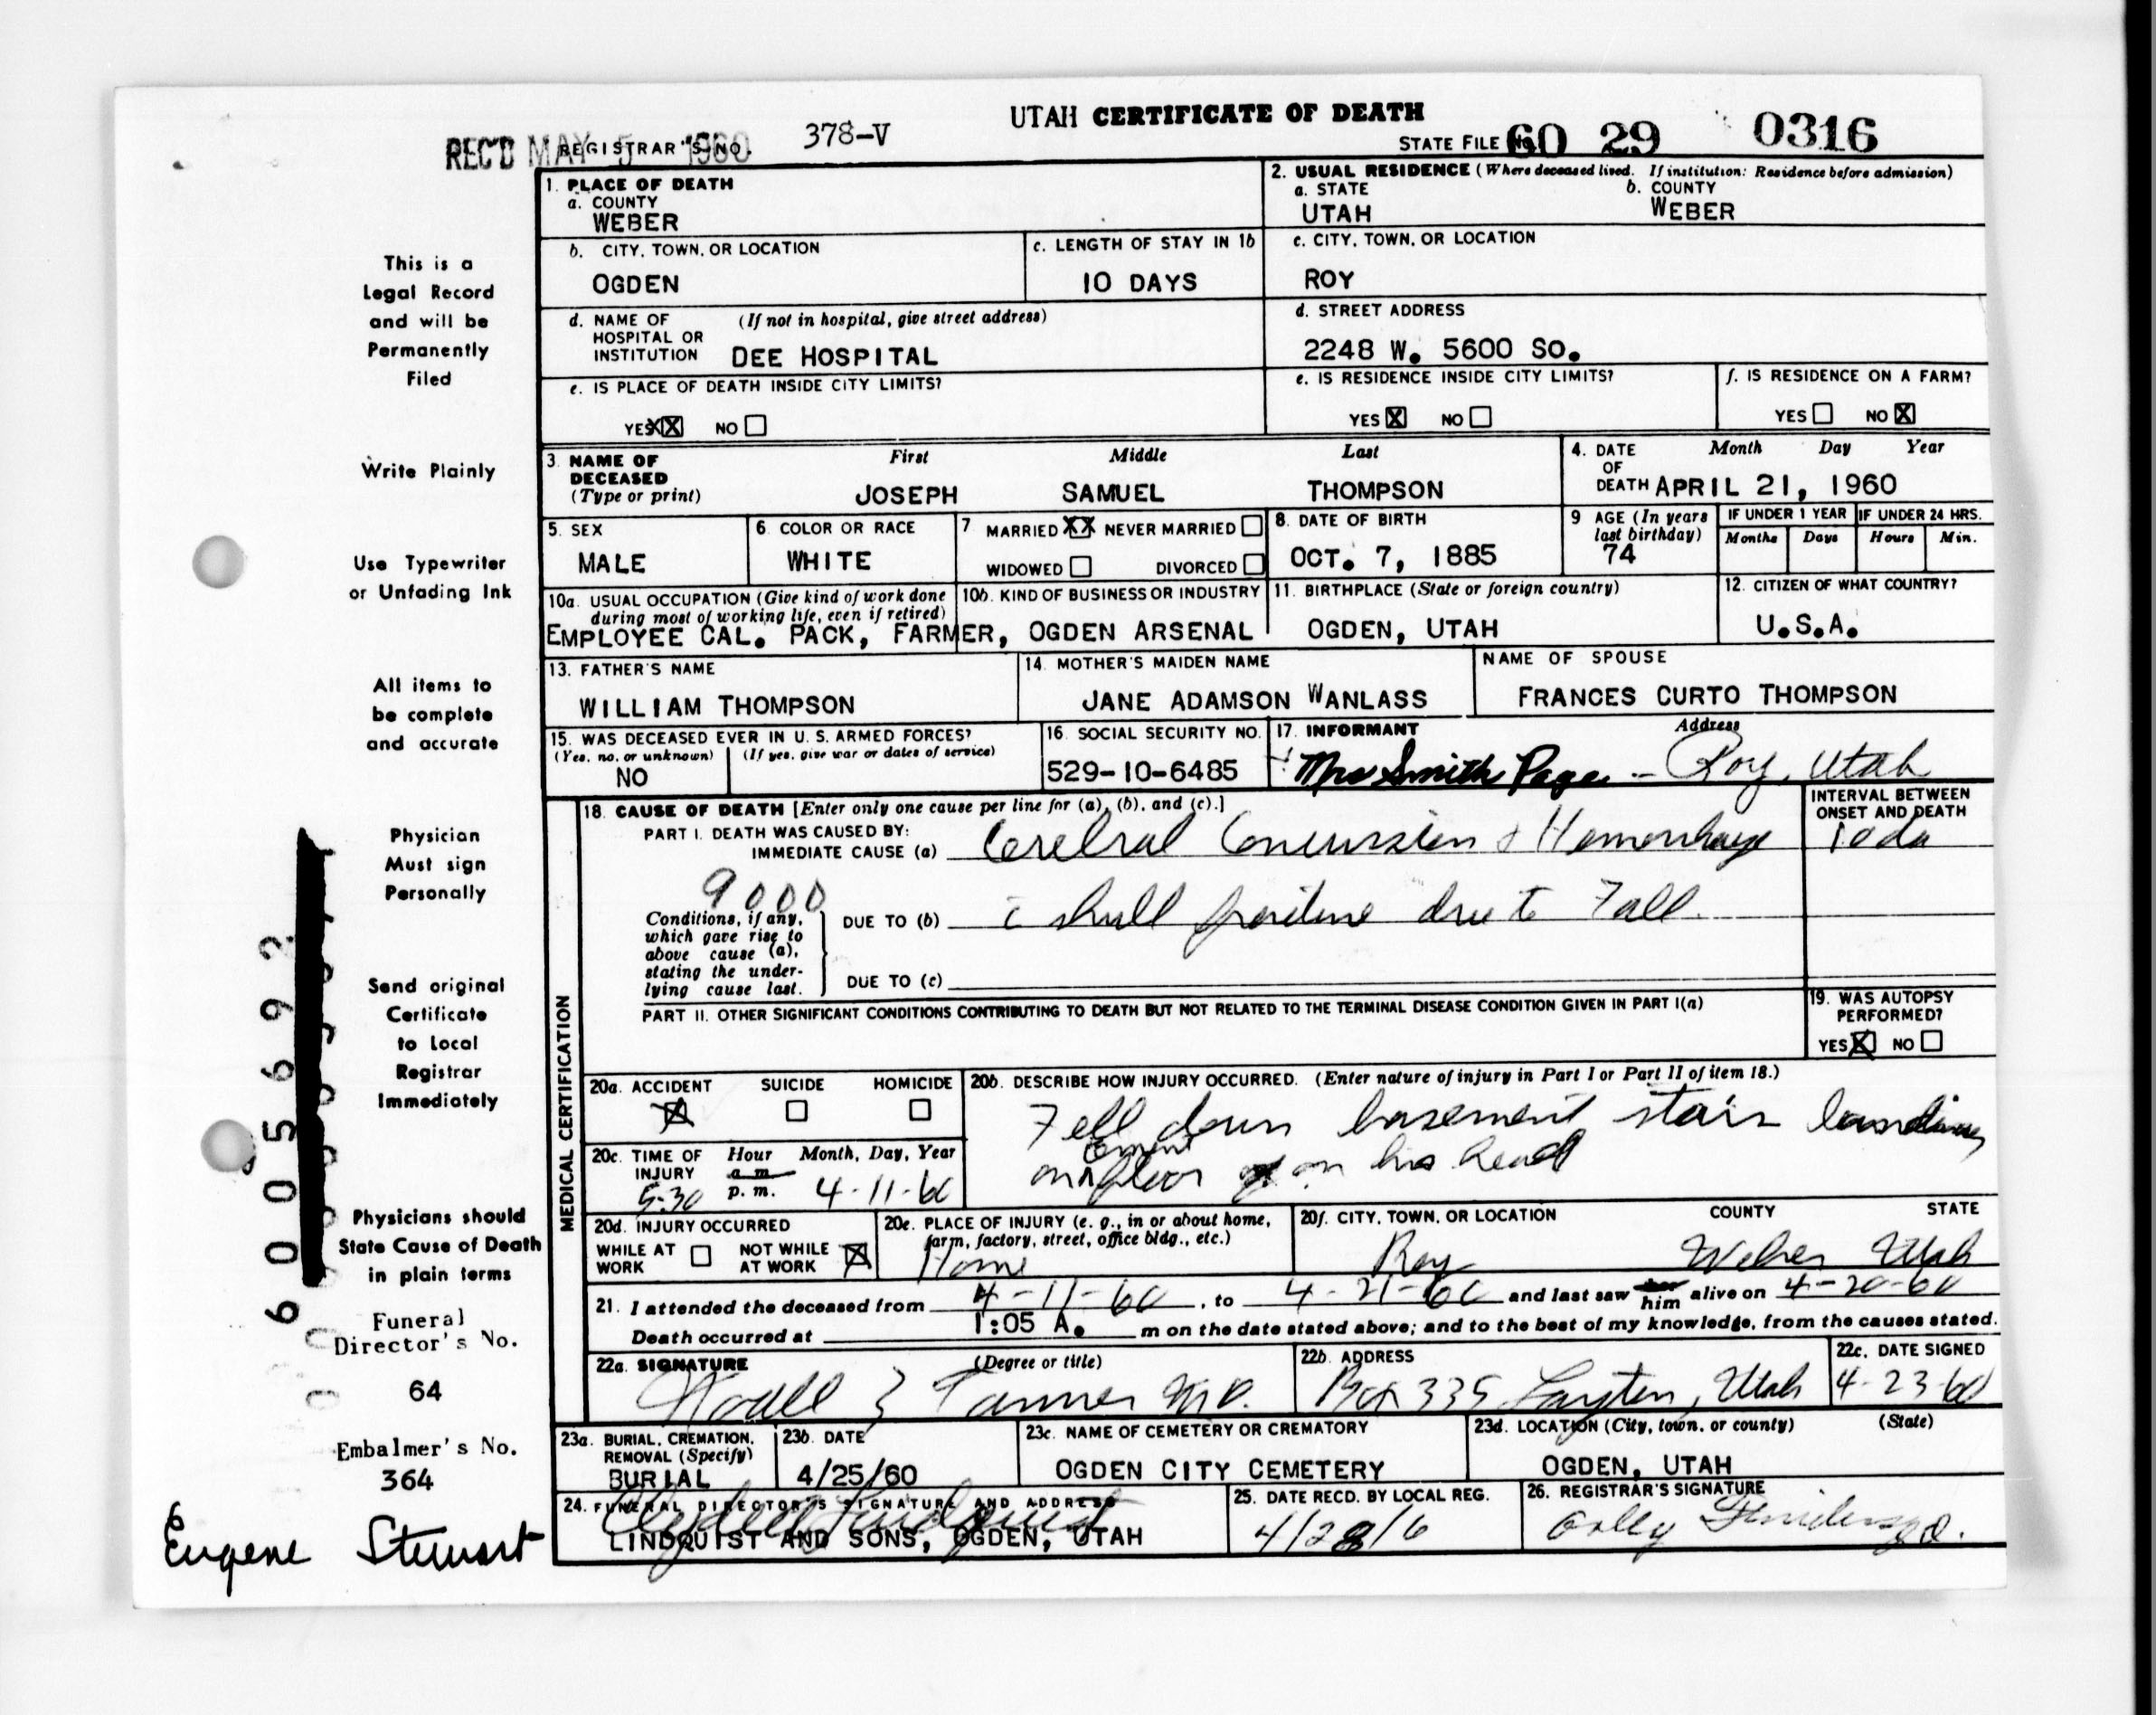 UTAH CERTIFICATE OF DEATH
REC'D MAY 5 1960
REGISTRAR'S NO. 378-V
STATE FILE NO. 60 29 0316
1. PLACE OF DEATH
a. COUNTY
WEBER
2. USUAL RESIDENCE (Where deceased lived. If institution: Residence before admission)
a. STATE b. COUNTY
UTAH WEBER
b. CITY, TOWN, OR LOCATION
OGDEN
c. LENGTH OF STAY IN 1b
10 DAYS
c. CITY, TOWN, OR LOCATION
ROY
d. NAME OF (If not in hospital, give street address)
HOSPITAL OR
INSTITUTION DEE HOSPITAL
d. STREET ADDRESS
2248 W. 5600 SO.
e. IS PLACE OF DEATH INSIDE CITY LIMITS?
YES XX NO
e. IS RESIDENCE INSIDE CITY LIMITS?
YES X NO
f. IS RESIDENCE ON A FARM?
YES NO X
3. NAME OF DECEASED (Type or print)
First Middle Last
JOSEPH SAMUEL THOMPSON
4. DATE OF DEATH Month Day Year
APRIL 21, 1960
5. SEX
MALE
6. COLOR OR RACE
WHITE
7 MARRIED XX NEVER MARRIED
WIDOWED DIVORCED
8. DATE OF BIRTH
OCT. 7, 1885
9 AGE (In years last birthday)
74
IF UNDER 1 YEAR
Months Days
IF UNDER 24 HRS.
Hours Min.
10a. USUAL OCCUPATION (Give kind of work done
during most of working life, even if retired)
10b. KIND OF BUSINESS OR INDUSTRY
EMPLOYEE CAL. PACK, FARMER, OGDEN ARSENAL
11. BIRTHPLACE (State or foreign country)
OGDEN, UTAH
12. CITIZEN OF WHAT COUNTRY?
U.S.A.
13. FATHER'S NAME
WILLIAM THOMPSON
14. MOTHER'S MAIDEN NAME
JANE ADAMSON WANLASS
NAME OF SPOUSE
FRANCES CURTO THOMPSON
15. WAS DECEASED EVER IN U. S. ARMED FORCES?
(Yes, no, or unknown) (If yes, give war or dates of service)
NO
16. SOCIAL SECURITY NO.
529-10-6485
17. INFORMANT Address
Mrs Smith Page - Roy, Utah
MEDICAL CERTIFICATION
18. CAUSE OF DEATH [Enter only one cause per line for (a), (b), and (c).]
INTERVAL BETWEEN
ONSET AND DEATH
PART I. DEATH WAS CAUSED BY:
IMMEDIATE CAUSE (a) Cerebral Concussion & Hemorrhage 10 da
9000
Conditions, if any,
which gave rise to
above cause (a),
stating the under-
lying cause last.
DUE TO (b) c̄ skull fracture due to Fall.
DUE TO (c)
PART II. OTHER SIGNIFICANT CONDITIONS CONTRIBUTING TO DEATH BUT NOT RELATED TO THE TERMINAL DISEASE CONDITION GIVEN IN PART I(a)
19. WAS AUTOPSY
PERFORMED?
YES X NO
20a. ACCIDENT SUICIDE HOMICIDE
X
20b. DESCRIBE HOW INJURY OCCURRED. (Enter nature of injury in Part I or Part II of item 18.)
Fell down basement stairs landing
on cement floor on his head
20c. TIME OF INJURY Hour a.m. p.m. Month, Day, Year
5:30 4-11-60
20d. INJURY OCCURRED
WHILE AT WORK NOT WHILE AT WORK X
20e. PLACE OF INJURY (e. g., in or about home,
farm, factory, street, office bldg., etc.)
Home
20f. CITY, TOWN, OR LOCATION COUNTY STATE
Roy Weber Utah
21. I attended the deceased from 4-11-60, to 4-21-60 and last saw her him alive on 4-20-60
Death occurred at 1:05 A. m on the date stated above; and to the best of my knowledge, from the causes stated.
22a. SIGNATURE (Degree or title)
Tanner M.D.
22b. ADDRESS
Box 335 Layton, Utah
22c. DATE SIGNED
4-23-60
23a. BURIAL, CREMATION,
REMOVAL (Specify)
BURIAL
23b. DATE
4/25/60
23c. NAME OF CEMETERY OR CREMATORY
OGDEN CITY CEMETERY
23d. LOCATION (City, town, or county) (State)
OGDEN, UTAH
24. FUNERAL DIRECTOR'S SIGNATURE AND ADDRESS
LINDQUIST AND SONS, OGDEN, UTAH
25. DATE RECD. BY LOCAL REG.
4/28/6
26. REGISTRAR'S SIGNATURE
This is a
Legal Record
and will be
Permanently
Filed
Write Plainly
Use Typewriter
or Unfading Ink
All items to
be complete
and accurate
Physician
Must sign
Personally
Send original
Certificate
to Local
Registrar
Immediately
Physicians should
State Cause of Death
in plain terms
Funeral
Director's No.
64
Embalmer's No.
364
Eugene Stewart
6005692